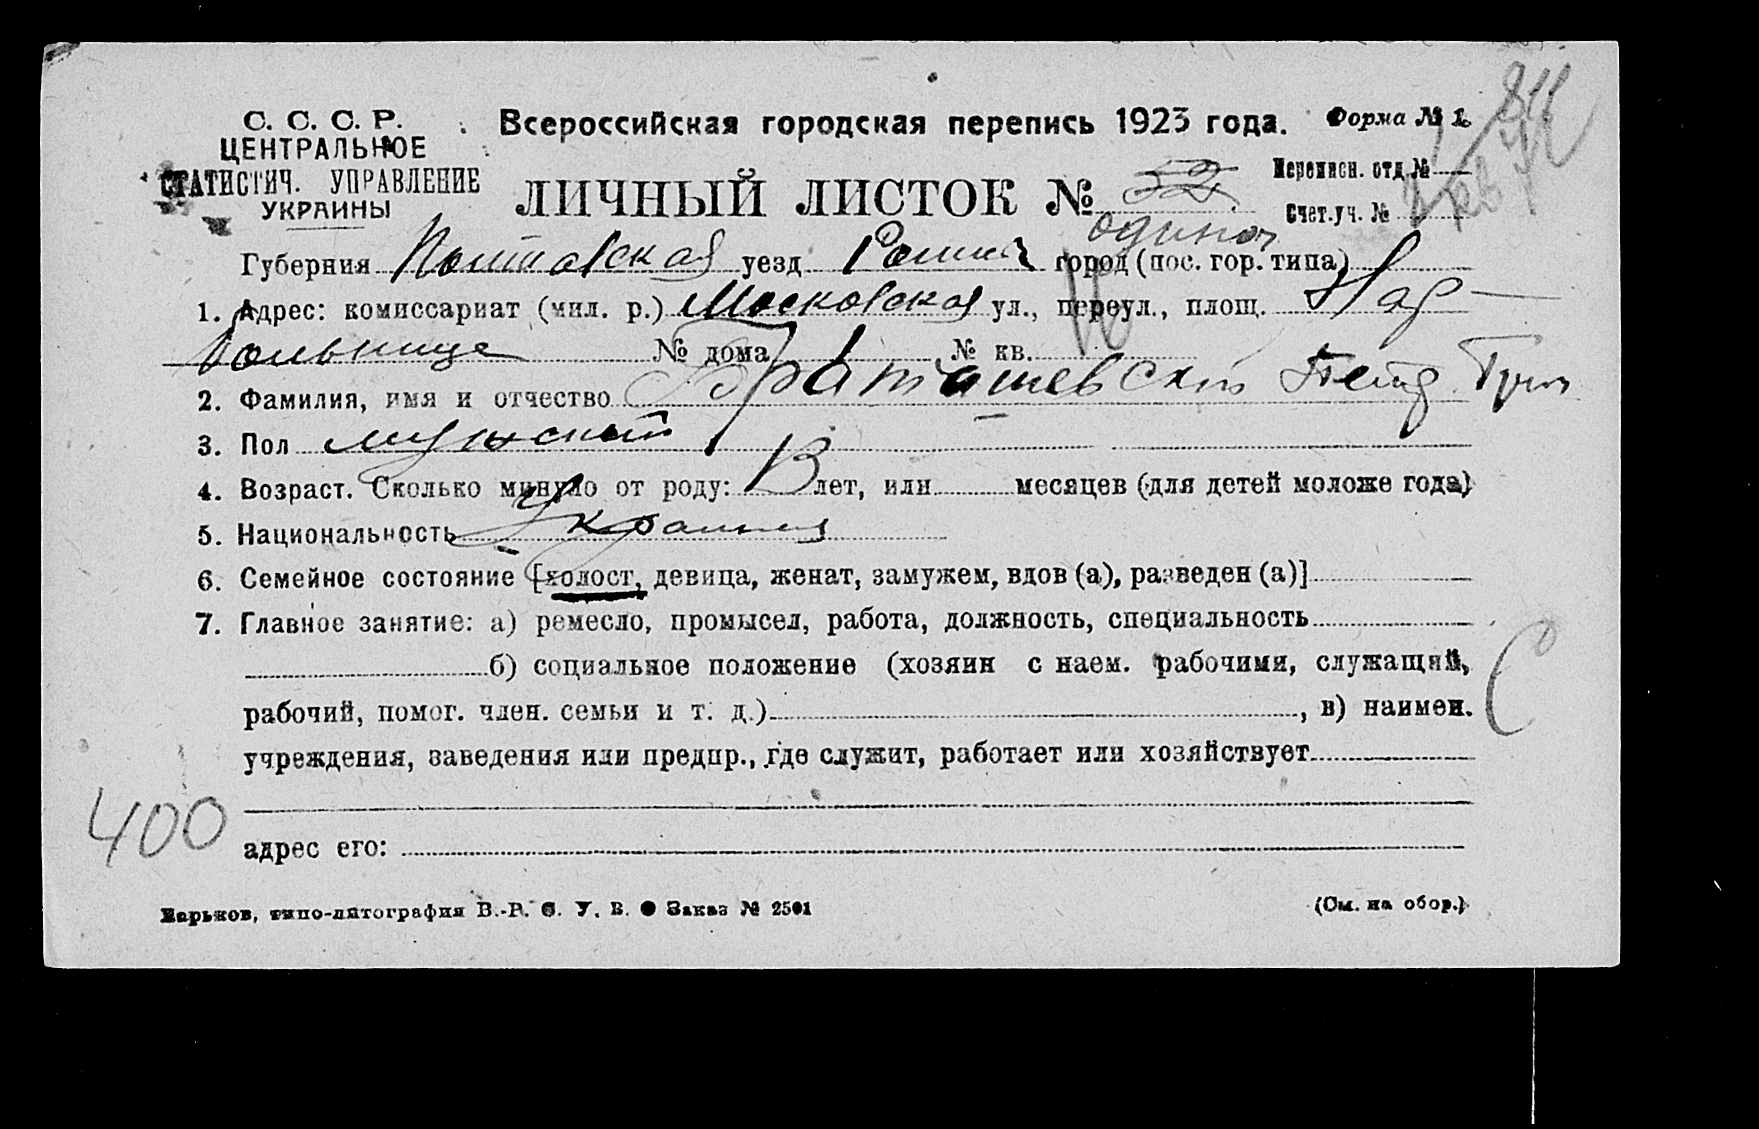 С. С. С. Р.
ЦЕНТРАЛЬНОЕ
СТАТИСТИЧ. УПРАВЛЕНИЕ
УКРАИНЫ
Всероссийская городская перепись 1923 года.
Форма № 1.
ЛИЧНЫЙ ЛИСТОК № 52
Переписн. отд. №
Счет. уч. №
Губерния Полтавская уезд город (пос. гор. типа)
1. Адрес: комиссариат (мил. р.) Московская ул., переул., площ. Нар-
больнице № дома 1 № кв.
2. Фамилия, имя и отчество Браташевский Петр
3. Пол мужской
4. Возраст. Сколько минуло от роду: 13 лет, или месяцев (для детей моложе года)
5. Национальность
6. Семейное состояние [холост, девица, женат, замужем, вдов (а), разведен (а)]
7. Главное занятие: а) ремесло, промысел, работа, должность, специальность
б) социальное положение (хозяин с наем. рабочими, служащий,
рабочий, помог. член. семьи и т. д.) , в) наимен.
учреждения, заведения или предпр., где служит, работает или хозяйствует
400
адрес его:
Харьков, типо-литография В.-Р. С. У. В. ● Заказ № 2501
(См. на обор.)